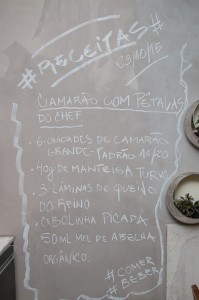 #RECEITAS#
29/10/15
CAMARÃO COM PÉTALAS
DO CHEF
• 6 UNIDADES DE CAMARÃO
GRANDE - PADRÃO 16/20
• 40g DE MANTEIGA TURVO
• 3 LÂMINAS DE QUEIJO
DO REINO
• CEBOLINHA PICADA
50 ML MEL DE ABELHA
ORGÂNICO.
#COMER
#BEBER